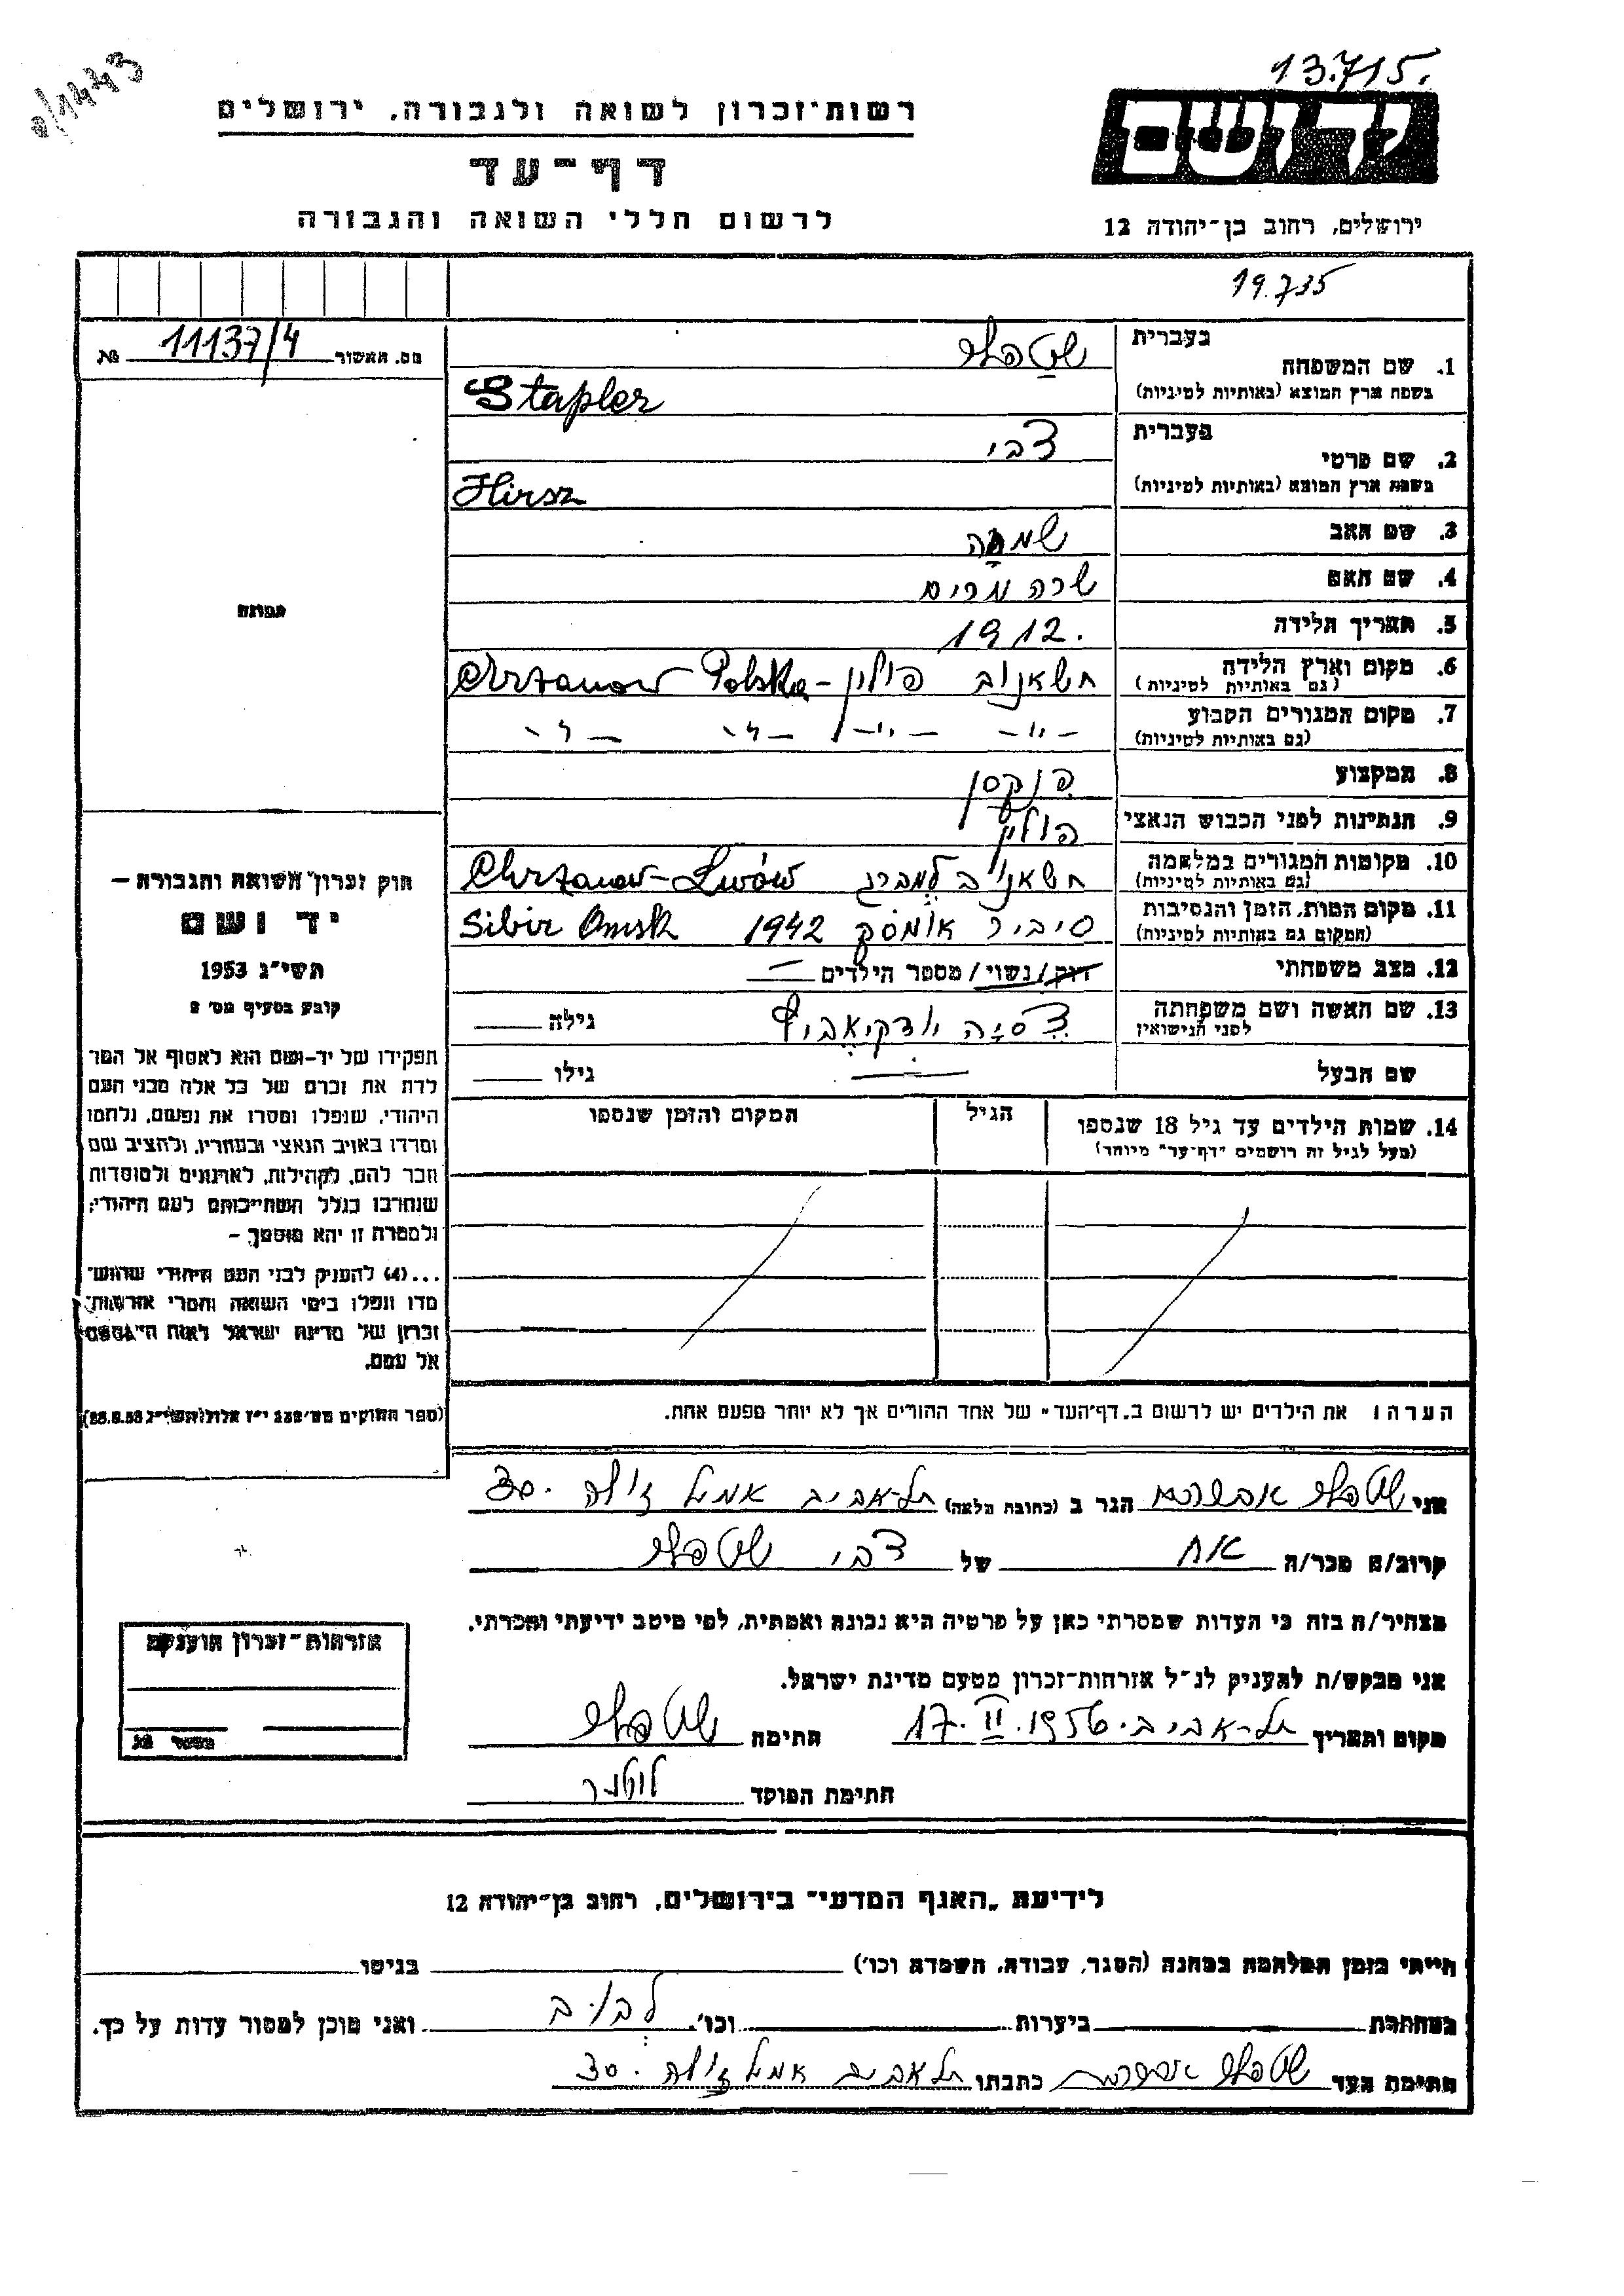 13.715.
רשות־זכרון לשואה ולגבורה, ירושלים
יד ושם
דף־עד
לרשום חללי השואה והגבורה
ירושלים, רחוב בן־יהודה 12
19.735
מס. האשור 11137/4 №
בעברית שטפלר
1. שם המשפחה
בשפת ארץ המוצא (באותיות לטיניות) Stapler
בעברית צבי
2. שם פרטי
בשפת ארץ המוצא (באותיות לטיניות) Hirsz
3. שם האב שמחה
4. שם האם שרה מרים
5. תאריך הלידה 1912.
6. מקום וארץ הלידה חשאנוב פולין - Chrzanow Polska
(גם באותיות לטיניות)
7. מקום המגורים הקבוע
(גם באותיות לטיניות)
8. המקצוע פנקסן
9. הנתינות לפני הכבוש הנאצי פולין
10. מקומות המגורים במלחמה חשאנוב למברג Chrzanow-Lwów
(גם באותיות לטיניות)
11. מקום המות, הזמן והנסיבות סיביר אומסק 1942 Sibir Omsk
(המקום גם באותיות לטיניות)
12. מצב משפחתי רווק/נשוי/מספר הילדים —
13. שם האשה ושם משפחתה
לפני הנישואין גילה
שם הבעל — גילו
14. שמות הילדים עד גיל 18 שנספו הגיל המקום והזמן שנספו
(מעל לגיל זה רושמים "דף־עד" מיוחד)
הערה: את הילדים יש לרשום ב"דף־העד" של אחד ההורים אך לא יותר מפעם אחת.
חתימה
חוק זכרון השואה והגבורה —
יד ושם
תשי"ג 1953
קובע בסעיף מס' 2
תפקידו של יד-ושם הוא לאסוף אל המו
לדת את זכרם של כל אלה מבני העם
היהודי, שנפלו ומסרו את נפשם, נלחמו
ומרדו באויב הנאצי ובעוזריו, ולהציב שם
וזכר להם, לקהילות, לארגונים ולמוסדות
שנחרבו בגלל השתייכותם לעם היהודי;
ולמטרה זו יהא מוסמך —
...(4) להעניק לבני העם היהודי שהוש־
מדו ונפלו בימי השואה והמרי אזרחות־
זכרון של מדינת ישראל לאות היאספם
אל עמם.
אני שטפלר אברהם הגר ב (כתובת מלאה) תל-אביב אמיל זולה 30.
קרוב/ה מכר/ה אח של צבי שטפלר
מצהיר/ה בזה כי העדות שמסרתי כאן על פרטיה היא נכונה ואמתית, לפי מיטב ידיעתי והכרתי.
אני מבקש/ת להעניק לנ"ל אזרחות־זכרון מטעם מדינת ישראל.
מקום ותאריך תל-אביב 17.II.1956 חתימה שטפלר
חתימת הפוקד
אזרחות־זכרון הוענקה
לידיעת "האגף המדעי" בירושלים, רחוב בן־יהודה 12
הייתי בזמן המלחמה במחנה (הסגר, עבודה, השמדה וכו') בגיטו
במחתרת ביערות וכו'. לבוב ואני מוכן למסור עדות על כך.
חתימת העד שטפלר אברהם כתבתו תל אביב אמיל זולה 30.